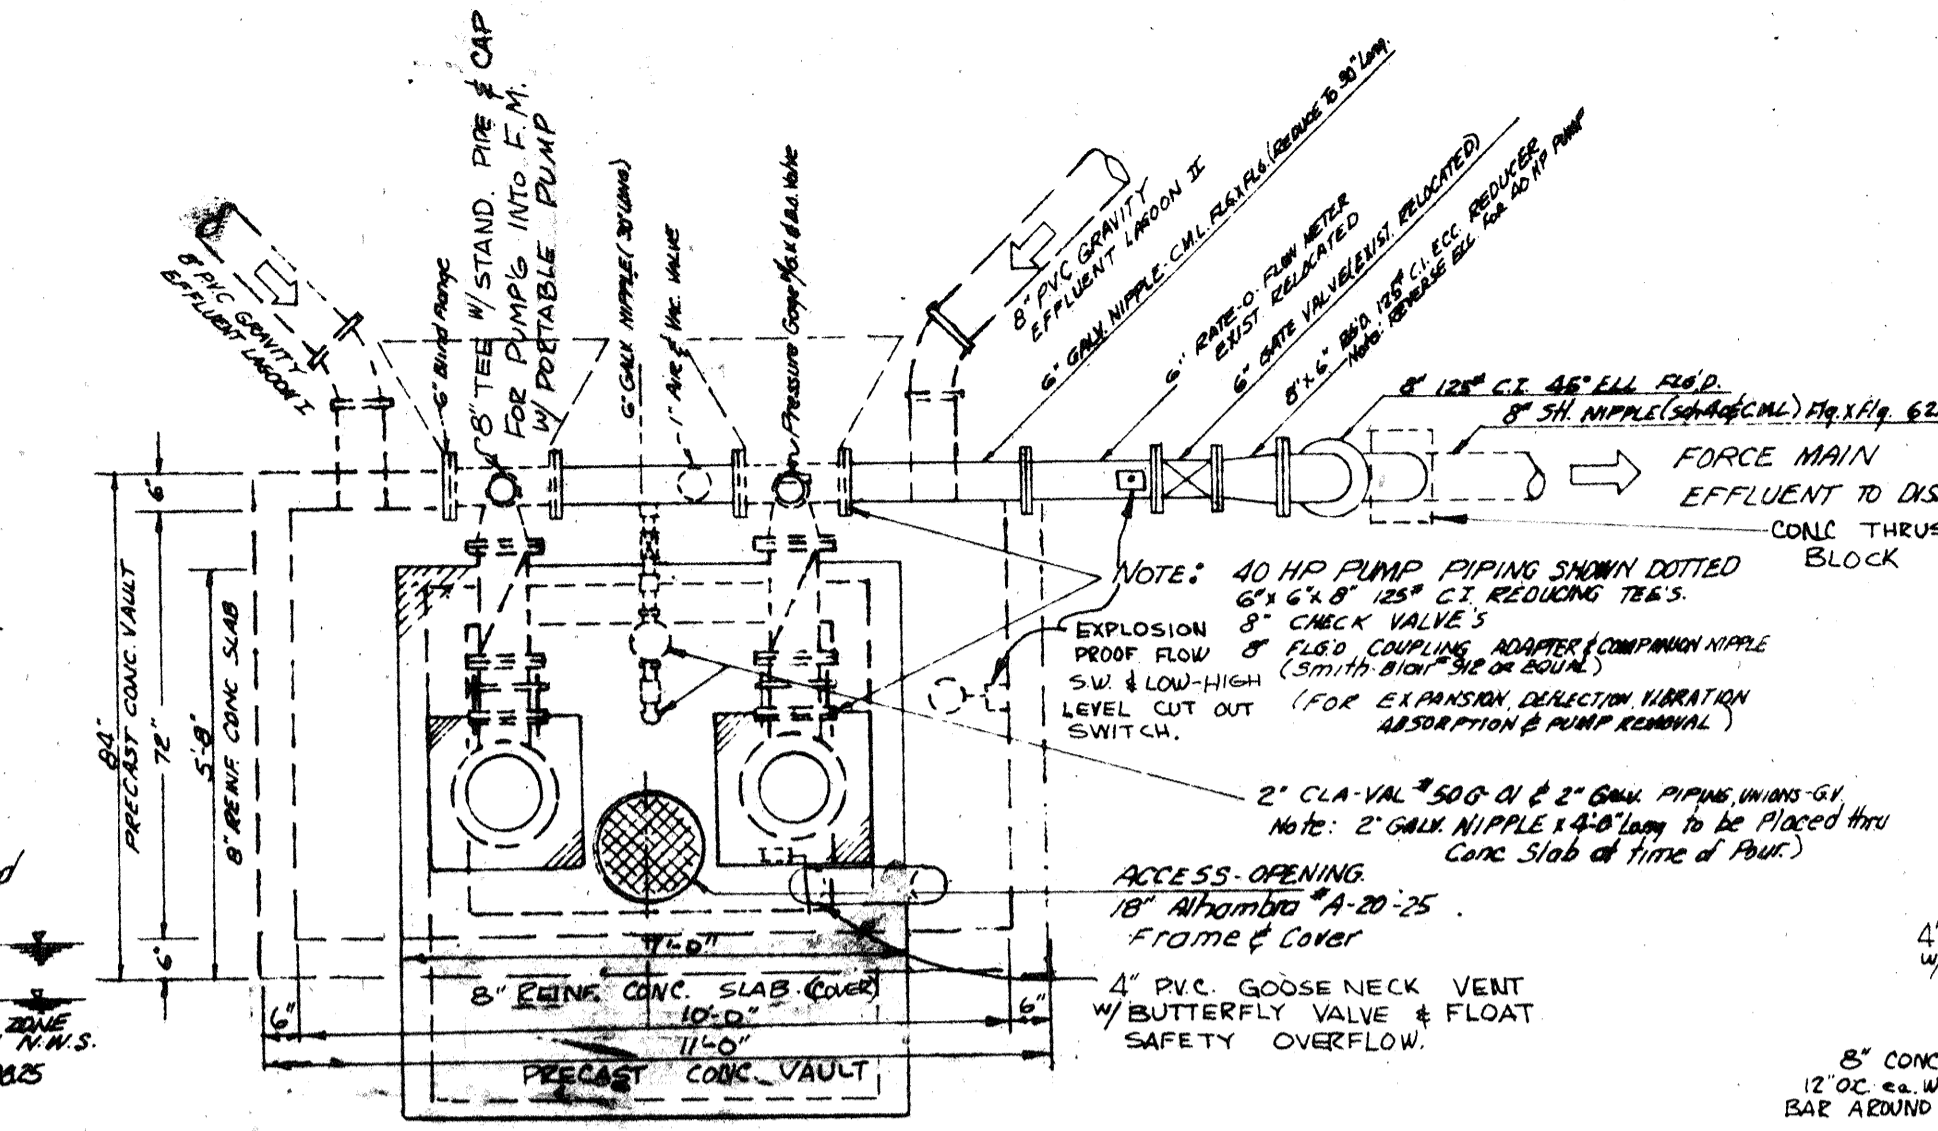 8" TEE W/ STAND. PIPE & CAP
FOR PUMP'G INTO F.M.
W/ PORTABLE PUMP
8" P.V.C GRAVITY
EFFLUENT LAGOON I
6" Blind Flange
6" GALV. NIPPLE (30" LONG)
1" AIR & VAC. VALVE
Pressure Gage
B.O. Valve
8" PVC GRAVITY
EFFLUENT LAGOON II
6" GALV. NIPPLE-C.M.L. FLG.XFLG. (REDUCE TO 30" Long.
6" RATE-O-FLOW METER
EXIST. RELOCATED
6" GATE VALVE (EXIST. RELOCATED)
8" x 6" 125# C.I. ECC. REDUCER
Note: REVERSE ELL FOR 40 HP PUMP
8" 125# C.I. 45° ELL FLG'D.
8" SH. NIPPLE (Sch 40 & CML) Flg.XFlg. 62
FORCE MAIN
EFFLUENT TO DIS
CONC THRUS
BLOCK
NOTE: 40 HP PUMP PIPING SHOWN DOTTED
6"x 6"x 8" 125# C.I. REDUCING TEE'S.
8" CHECK VALVE'S
8" FLG'D COUPLING ADAPTER & COMPANION NIPPLE
(Smith-Blair #912 OR EQUAL)
(FOR EXPANSION, DEFLECTION, VIBRATION
ABSORPTION & PUMP REMOVAL)
EXPLOSION
PROOF FLOW
S.W. & LOW-HIGH
LEVEL CUT OUT
SWITCH.
2" CLA-VAL #50G-01 & 2" GALV. PIPING, UNIONS-G.V.
Note: 2" GALV. NIPPLE x 4'-0" Long to be Placed thru
Conc Slab at time of Pour.)
ACCESS-OPENING.
18" Alhambra #A-20-25
Frame & Cover
4" P.V.C. GOOSE NECK VENT
W/ BUTTERFLY VALVE & FLOAT
SAFETY OVERFLOW.
6"
84"
PRECAST CONC. VAULT
72"
5'-8"
8" REINF. CONC SLAB
6"
7'-0"
8" REINF. CONC. SLAB (COVER)
6"
10'-0"
6"
11'-0"
PRECAST CONC. VAULT
d
ZONE
N.W.S.
4"
W/
8" CONC
12" O.C. ea. W
BAR AROUND